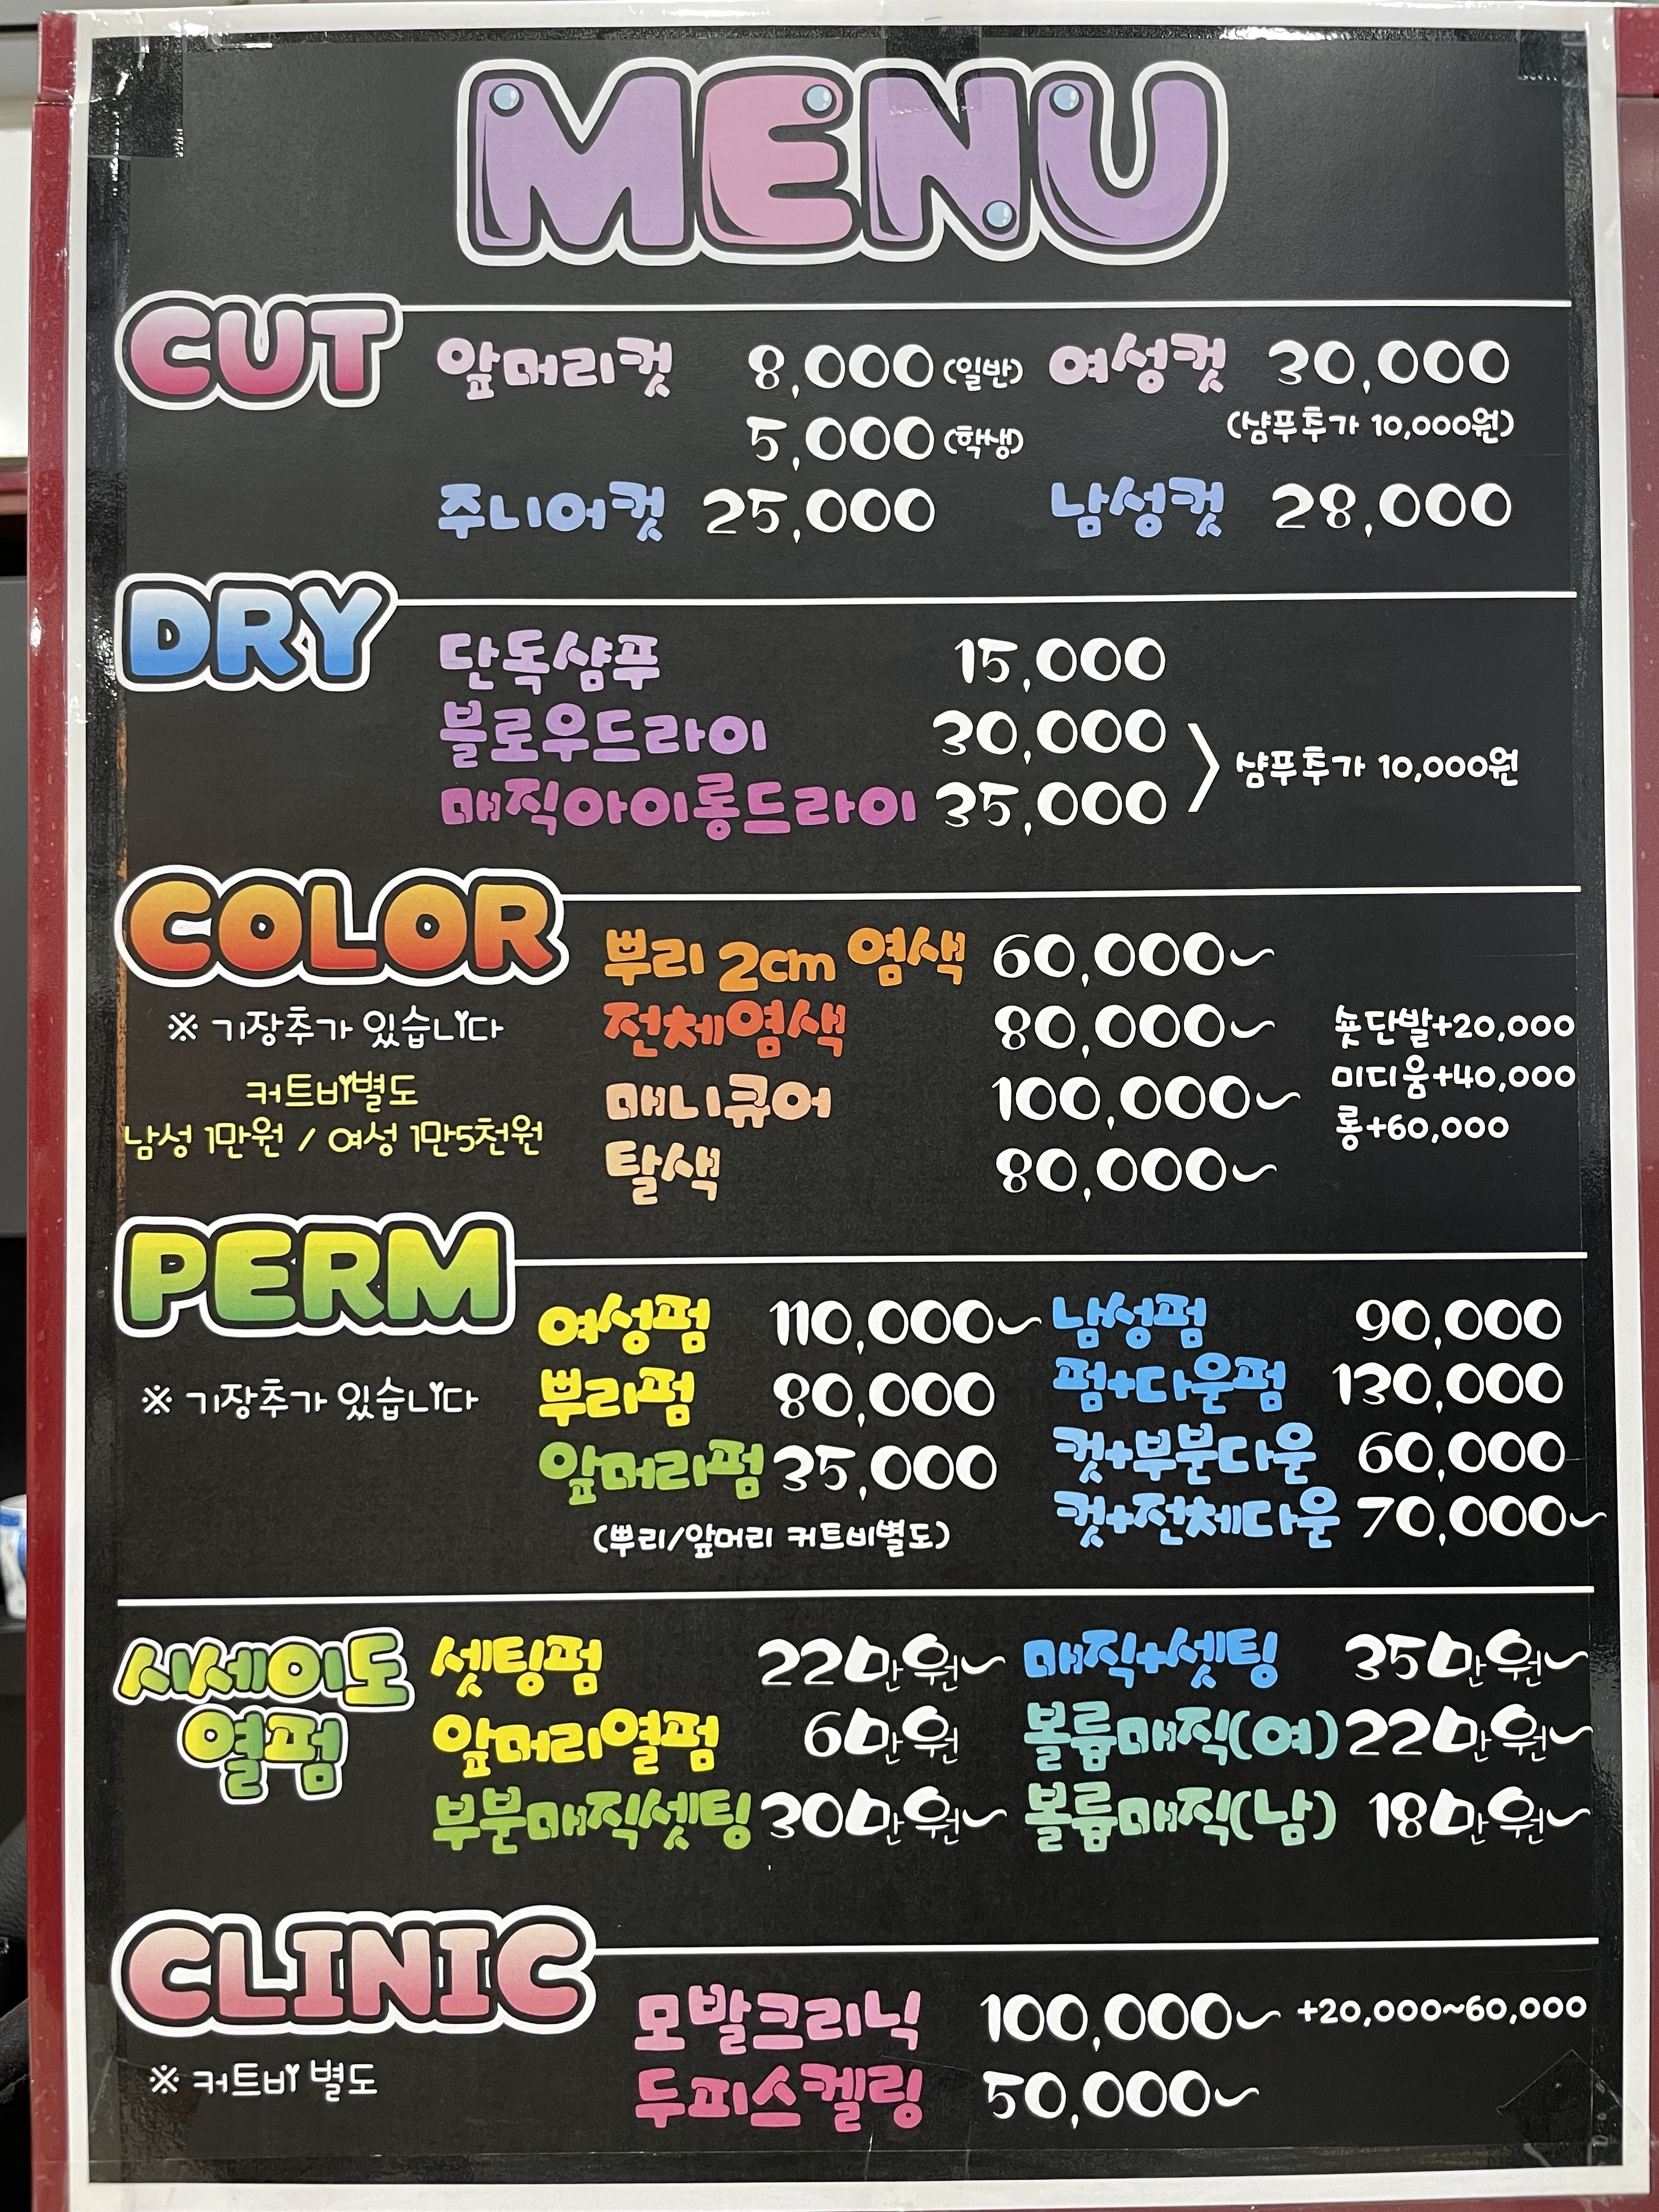 MENU
CUT
앞머리컷 8,000 (일반) 여성컷 30,000
5,000 (학생) (샴푸추가 10,000원)
주니어컷 25,000 남성컷 28,000
DRY
단독샴푸 15,000
블로우드라이 30,000
매직아이롱드라이 35,000
> 샴푸추가 10,000원
COLOR
※ 기장추가 있습니다
커트비별도
남성 1만원 / 여성 1만5천원
뿌리 2cm 염색 60,000~
전체염색 80,000~
매니큐어 100,000~
탈색 80,000~
숏단발+20,000
미디움+40,000
롱+60,000
PERM
※ 기장추가 있습니다
여성펌 110,000~ 남성펌 90,000
뿌리펌 80,000 펌+다운펌 130,000
앞머리펌 35,000 컷+부분다운 60,000
(뿌리/앞머리 커트비별도) 컷+전체다운 70,000~
시세이도
열펌
셋팅펌 22만원~ 매직+셋팅 35만원~
앞머리열펌 6만원 볼륨매직(여) 22만원~
부분매직셋팅 30만원~ 볼륨매직(남) 18만원~
CLINIC
※ 커트비 별도
모발크리닉 100,000~ +20,000~60,000
두피스켈링 50,000~